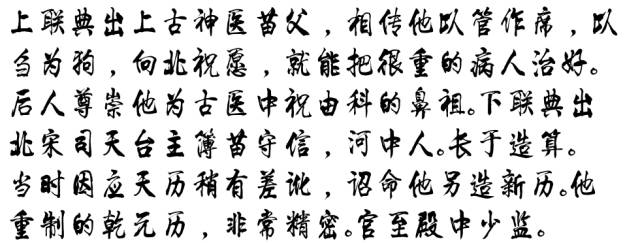 上联典出上古神医苗父，相传他以管作席，以
刍为狗，向北祝愿，就能把很重的病人治好。
后人尊崇他为古医中祝由科的鼻祖。下联典出
北宋司天台主簿苗守信，河中人。长于造算。
当时因应天历稍有差讹，诏命他另造新历。他
重制的乾元历，非常精密。官至殿中少监。